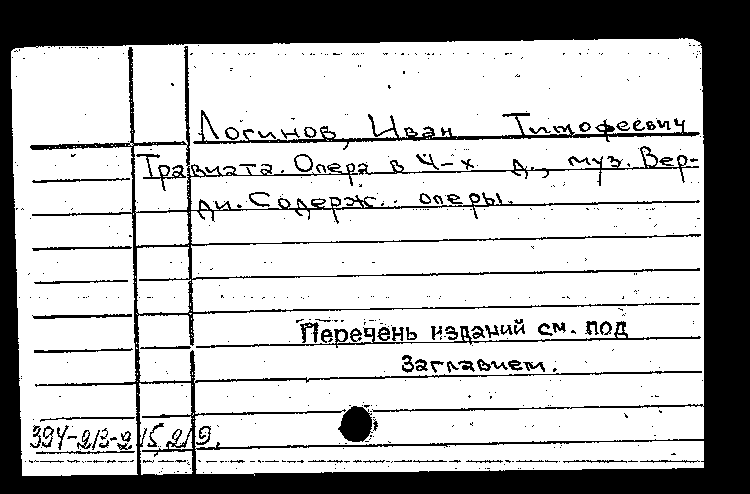 Логинов, Иван Тимофеевич
Травиата. Опера в 4-х д., муз. Вер-
ди. Содерж. оперы.
Перечень изданий см. под
Заглавием.
394-213-2 15 219.